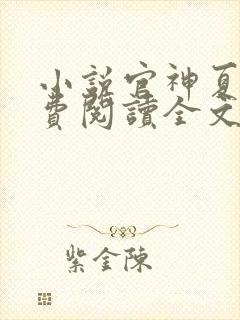 小說官神夏
費閱讀全文
紫金陳